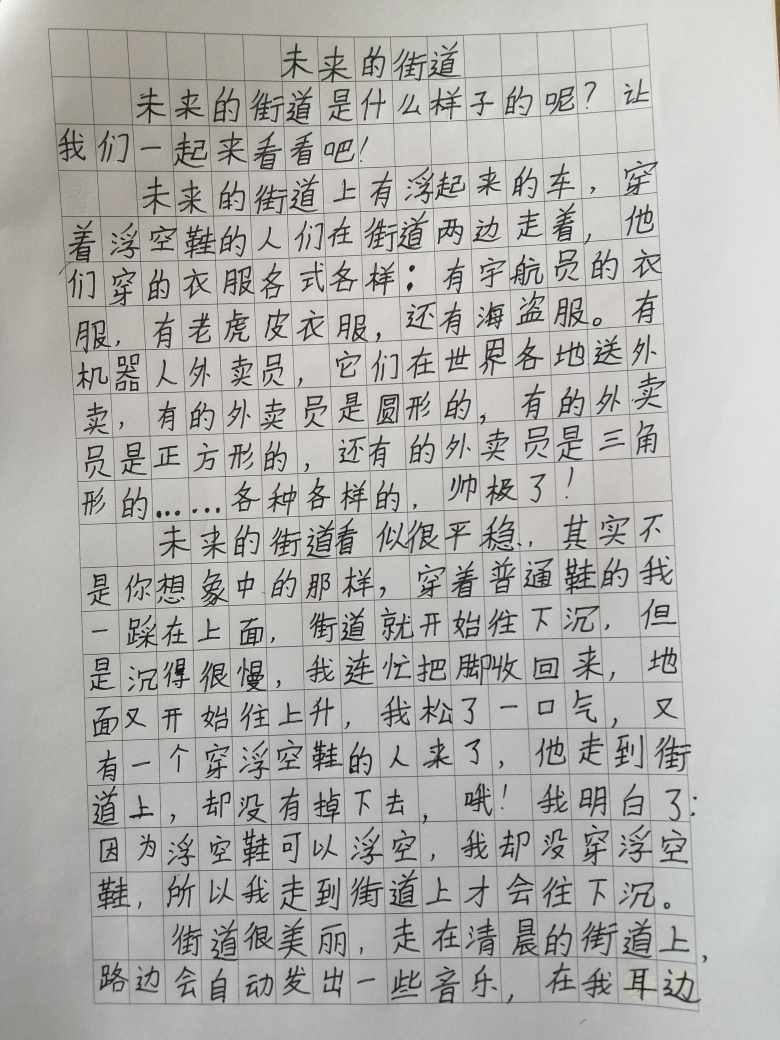 未来的街道
未来的街道是什么样子的呢？让
我们一起来看看吧！
未来的街道上有浮起来的车，穿
着浮空鞋的人们在街道两边走着，他
们穿的衣服各式各样：有宇航员的衣
服，有老虎皮衣服，还有海盗服。有
机器人外卖员，它们在世界各地送外
卖，有的外卖员是圆形的，有的外卖
员是正方形的，还有的外卖员是三角
形的……各种各样的，帅极了！
未来的街道看似很平稳，其实不
是你想象中的那样，穿着普通鞋的我
一踩在上面，街道就开始往下沉，但
是沉得很慢，我连忙把脚收回来，地
面又开始往上升，我松了一口气，又
有一个穿浮空鞋的人来了，他走到街
道上，却没有掉下去，哦！我明白了：
因为浮空鞋可以浮空，我却没穿浮空
鞋，所以我走到街道上才会往下沉。
街道很美丽，走在清晨的街道上，
路边会自动发出一些音乐，在我耳边